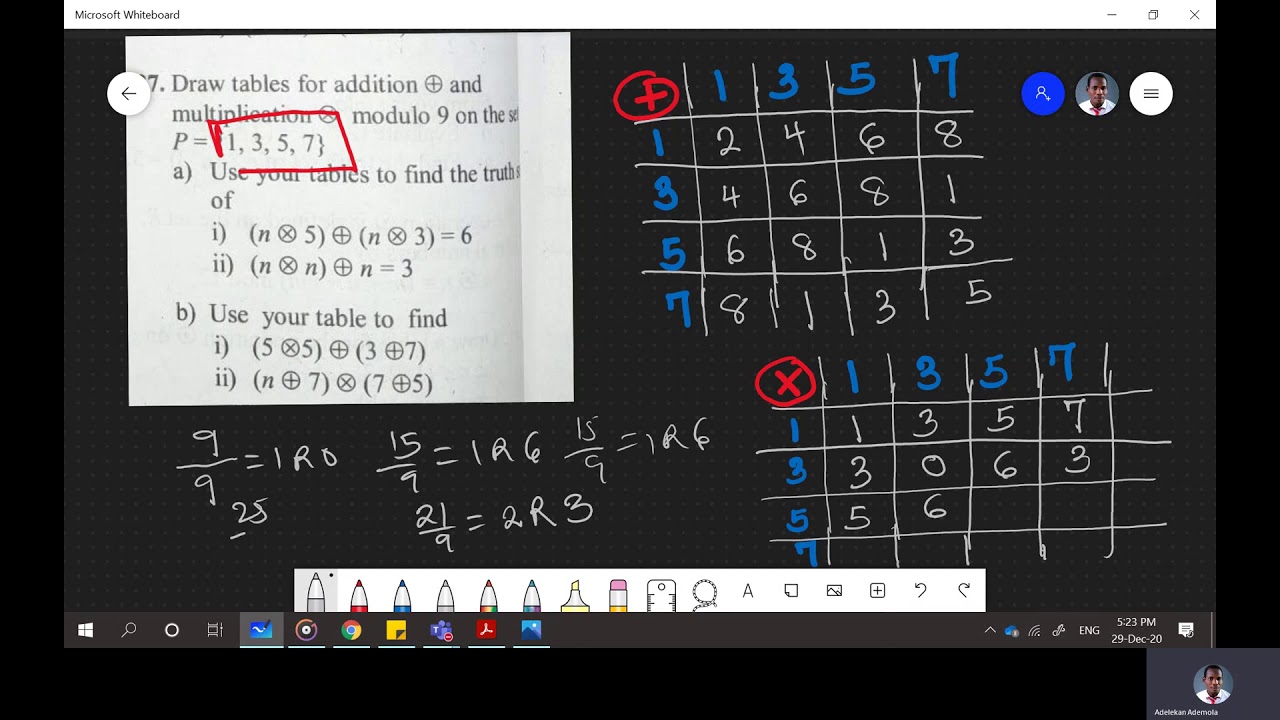 Microsoft Whiteboard
7. Draw tables for addition ⊕ and
multiplication ⊗ modulo 9 on the se
P = {1, 3, 5, 7}
a) Use your tables to find the truth s
of
i) (n ⊗ 5) ⊕ (n ⊗ 3) = 6
ii) (n ⊗ n) ⊕ n = 3
b) Use your table to find
i) (5 ⊗5) ⊕ (3 ⊕7)
ii) (n ⊕ 7) ⊗ (7 ⊕5)
+ 1 3 5 7
1 2 4 6 8
3 4 6 8 1
5 6 8 1 3
7 8 1 3 5
x 1 3 5 7
1 1 3 5 7
3 3 0 6 3
5 5 6
7
9/9 = 1R0 15/9 = 1R6 15/9 = 1R6
25 21/9 = 2R3
A
ENG
5:23 PM
29-Dec-20
Adelekan Ademola